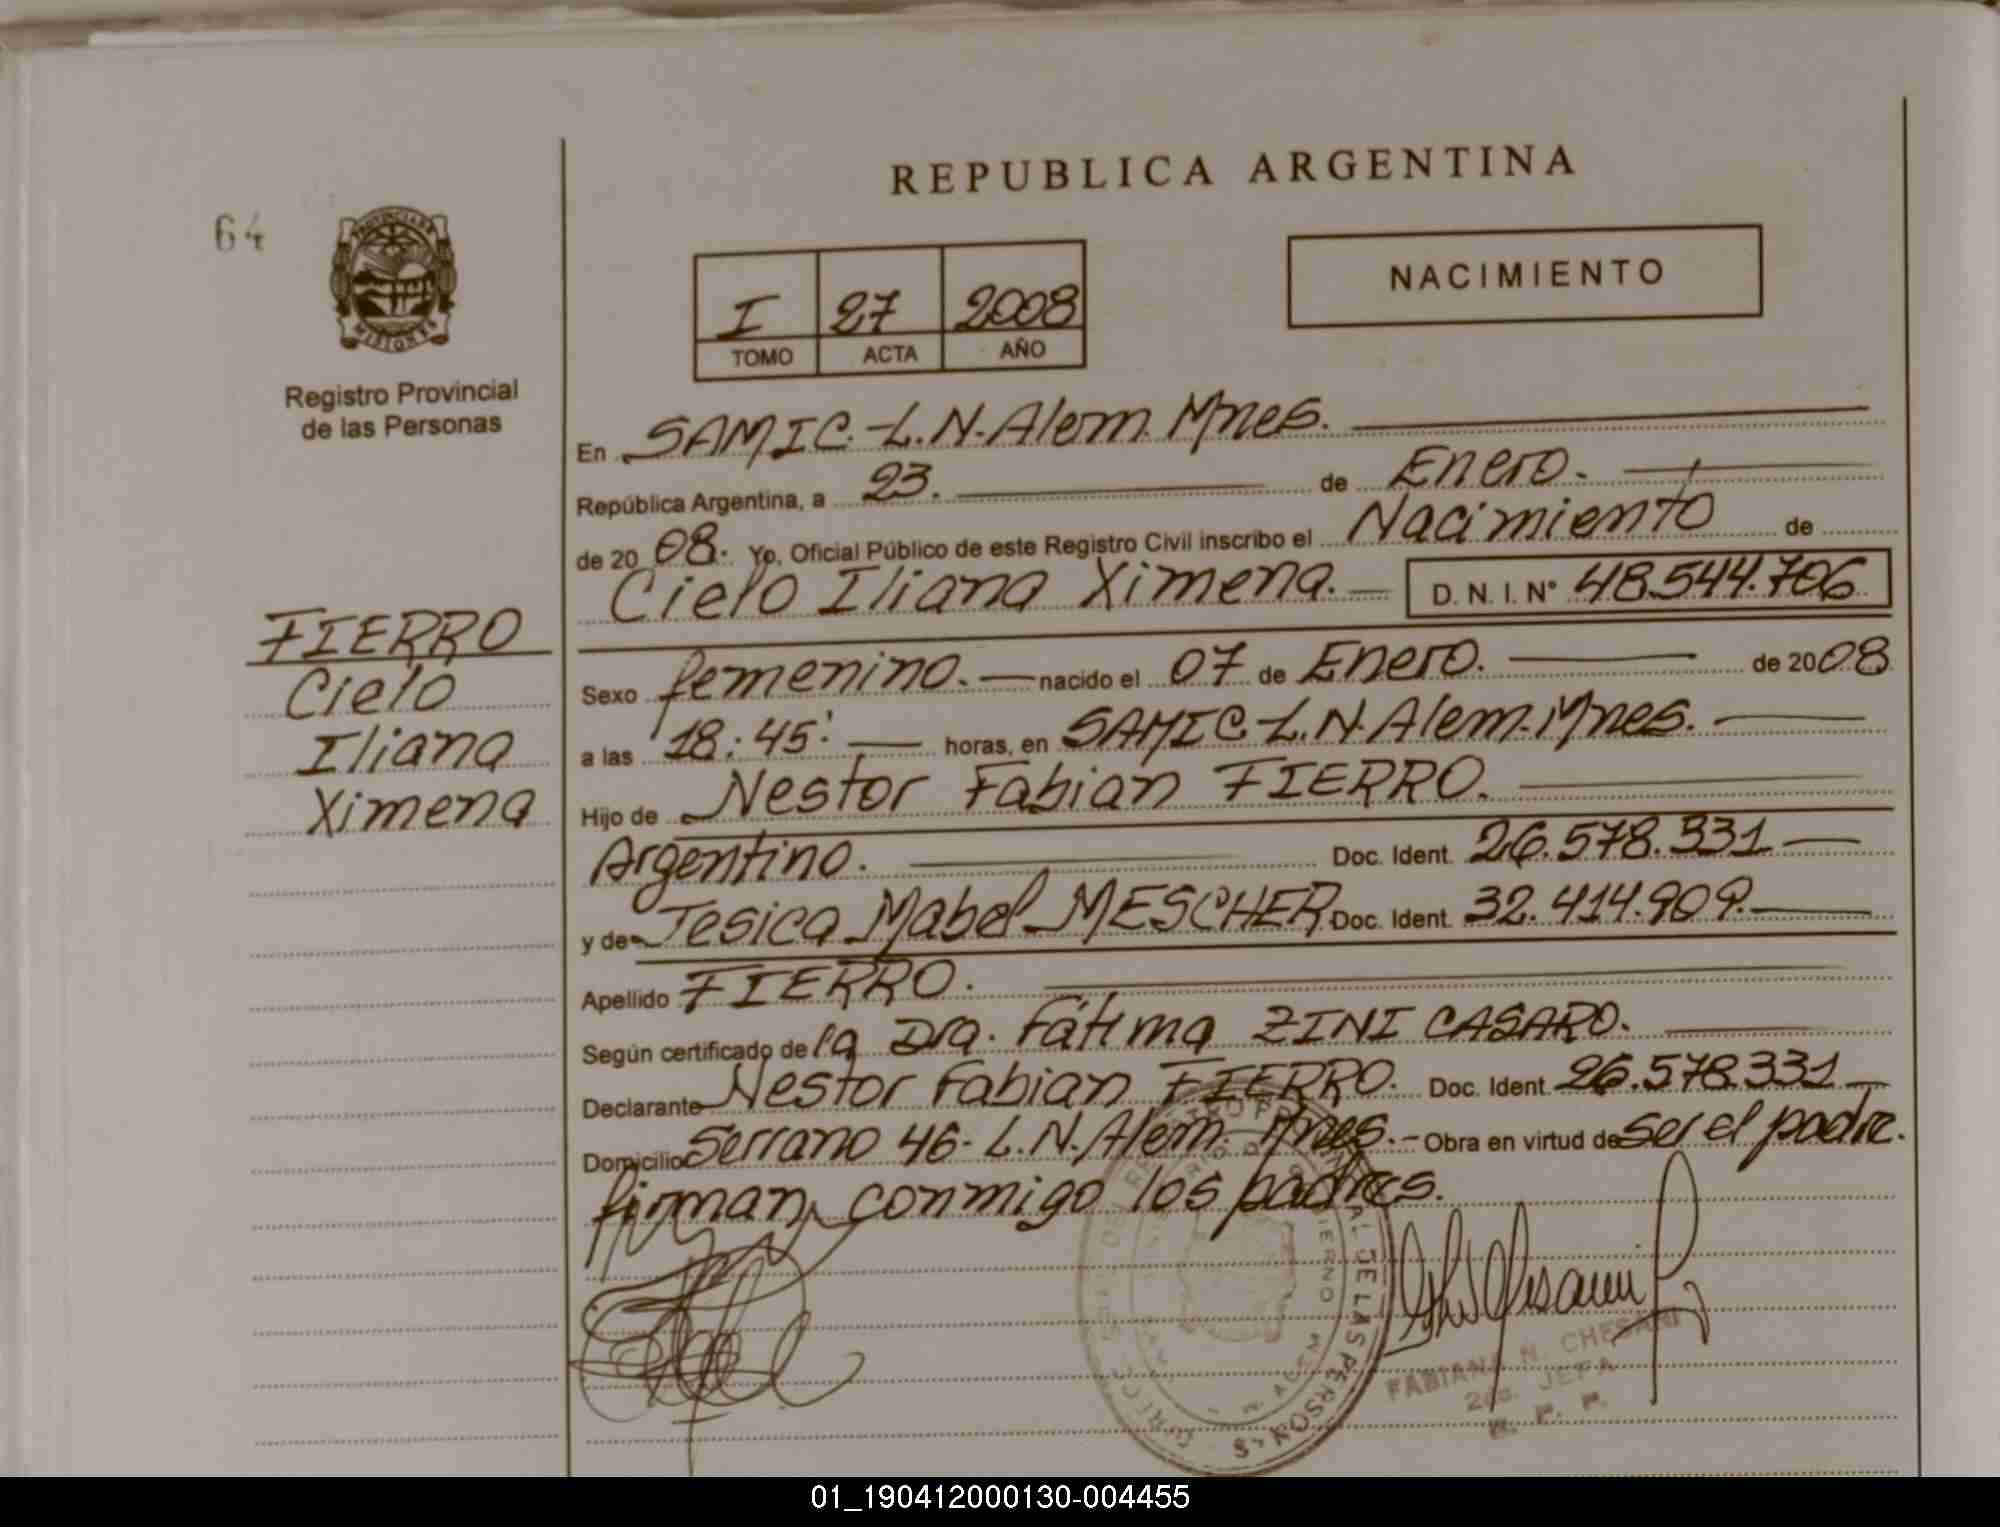 REPUBLICA ARGENTINA
64
PROVINCIA DE
MISIONES
Registro Provincial
de las Personas
I 27 2008
TOMO ACTA AÑO
NACIMIENTO
En SAMIC.-L.N.Alem.Mnes.
República Argentina, a 23. de Enero.
de 2008. Yo, Oficial Público de este Registro Civil inscribo el Nacimiento de
Cielo Iliana Ximena.- D. N. I. Nº 48.544.706
FIERRO
Cielo
Iliana
Ximena
Sexo femenino.- nacido el 07 de Enero. de 2008
a las 18:45' horas, en SAMIC-L.N.Alem.Mnes.
Hijo de Nestor Fabian FIERRO.
Argentino. Doc. Ident. 26.578.331
y de Jesica Mabel MESCHER. Doc. Ident. 32.414.909.
Apellido FIERRO.
Según certificado de la Dra. Fátima ZINI CASARO.
Declarante Nestor Fabian FIERRO. Doc. Ident. 26.578.331
Domicilio Serrano 46- L.N.Alem. Mnes.- Obra en virtud de Ser el padre.
firman conmigo los padres.
FABIANA N. CHESANI
2da. JEFA
R. P. P.
01_190412000130-004455